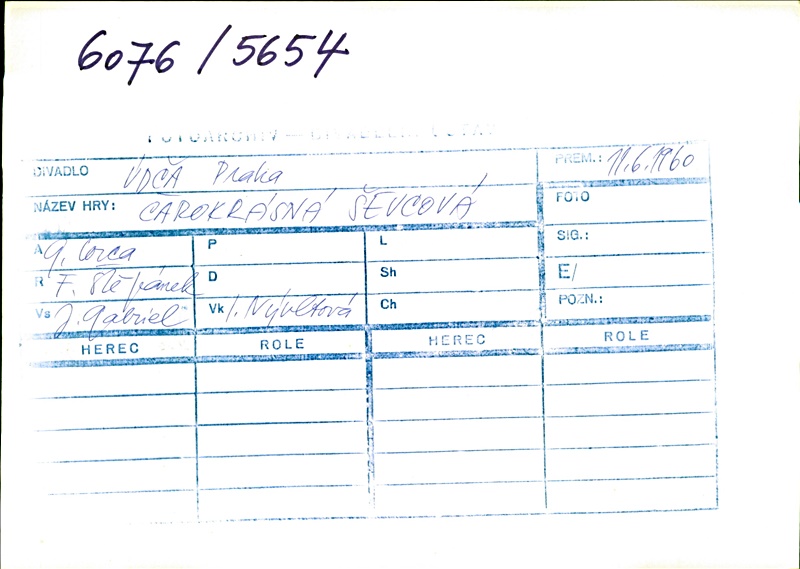 6076 / 5654
FOTOARCHIV — DIVADELNÍ ÚSTAV
DIVADLO ÚDČA Praha
PREM.: 11.6.1960
NÁZEV HRY: ČAROKRÁSNÁ ŠEVCOVÁ
FOTO
A G. Lorca P L
SIG.:
R F. Štěpánek D Sh
E/
Vs J. Gabriel Vk I. Nývltová Ch
POZN.:
HEREC ROLE HEREC ROLE